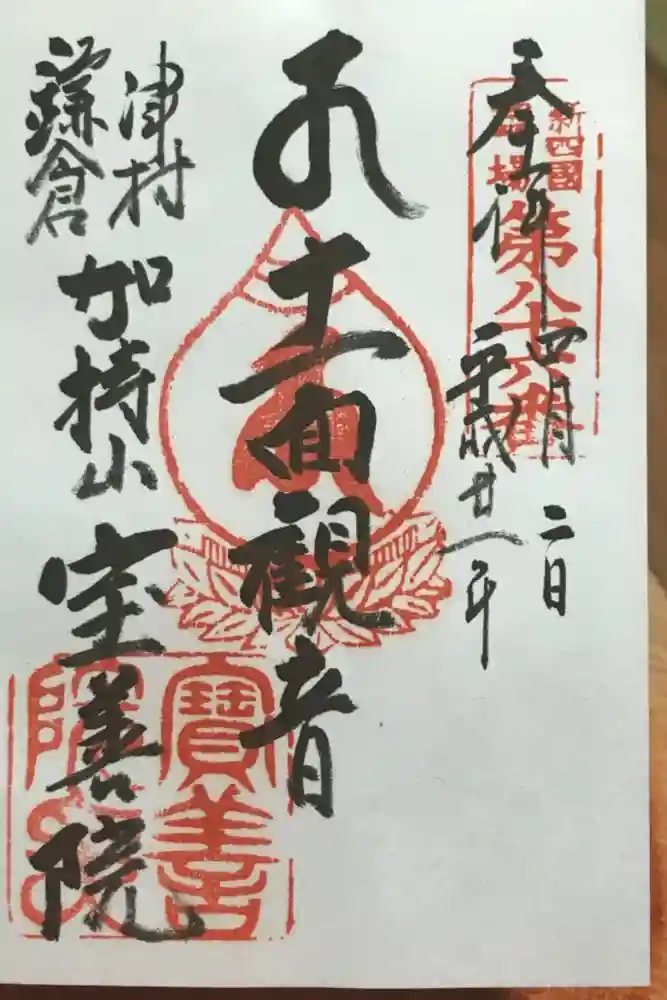 奉拝
新四國
霊場
四月二日
平成廿一年
十一面観音
津村
鎌倉
加持山
宝善院
寶善
院